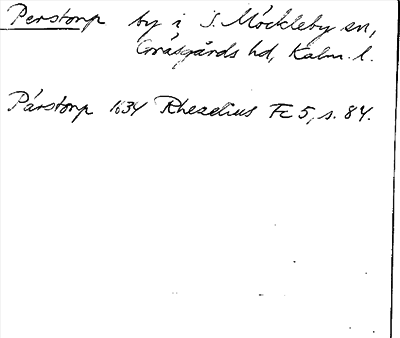 Perstorp by i S. Möckleby sn,
Gräsgårds hd, Kalm. l.
Pärstorp 1634 Rhezelius Fc 5, s. 84.